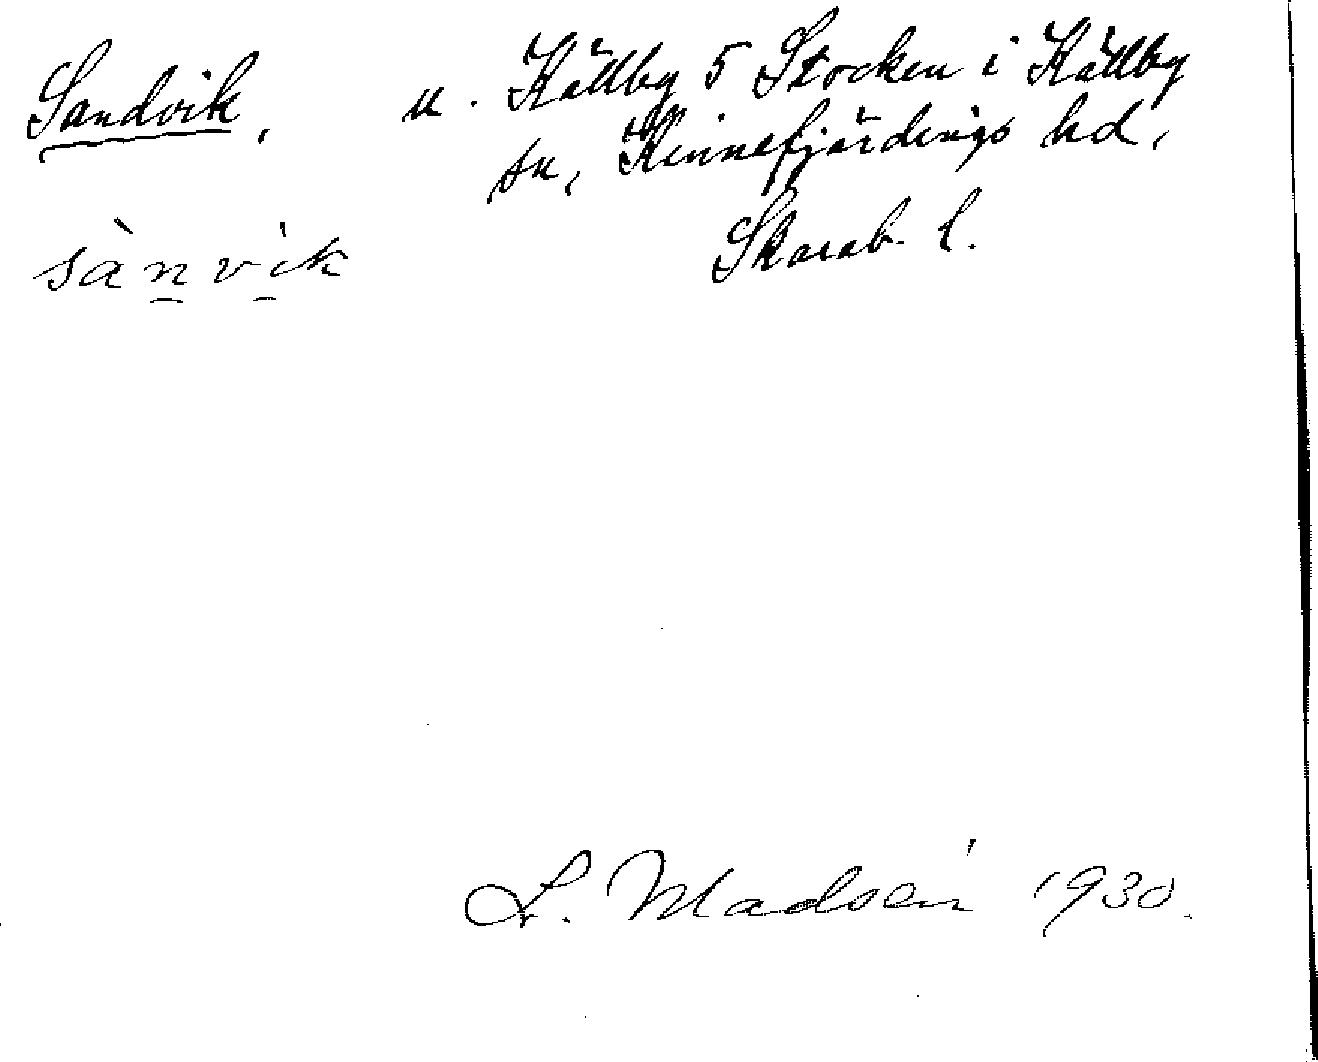 Sandvik, u. Källby 5 Stocken i Källby
sn, Kinnefjärdings hd,
Skarab. l.
sànvik
L. Madsén 1930.